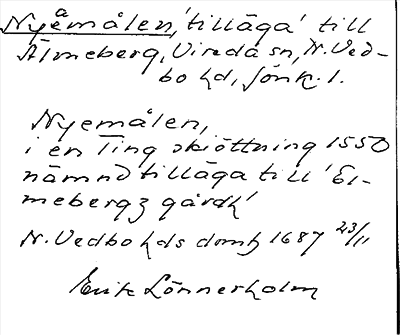 Nyåemålen, 'tillåga' till
Älmeberg, Vireda sn, N. Ved-
bo hd, Jönk. l.
Nyemålen,
i en Ting skiöttning 1550
nämnd 'tillåga till 'El-
mebergz gårdh'
N. Vedbo hds domb 1687 23/11
Erik Lönnerholm